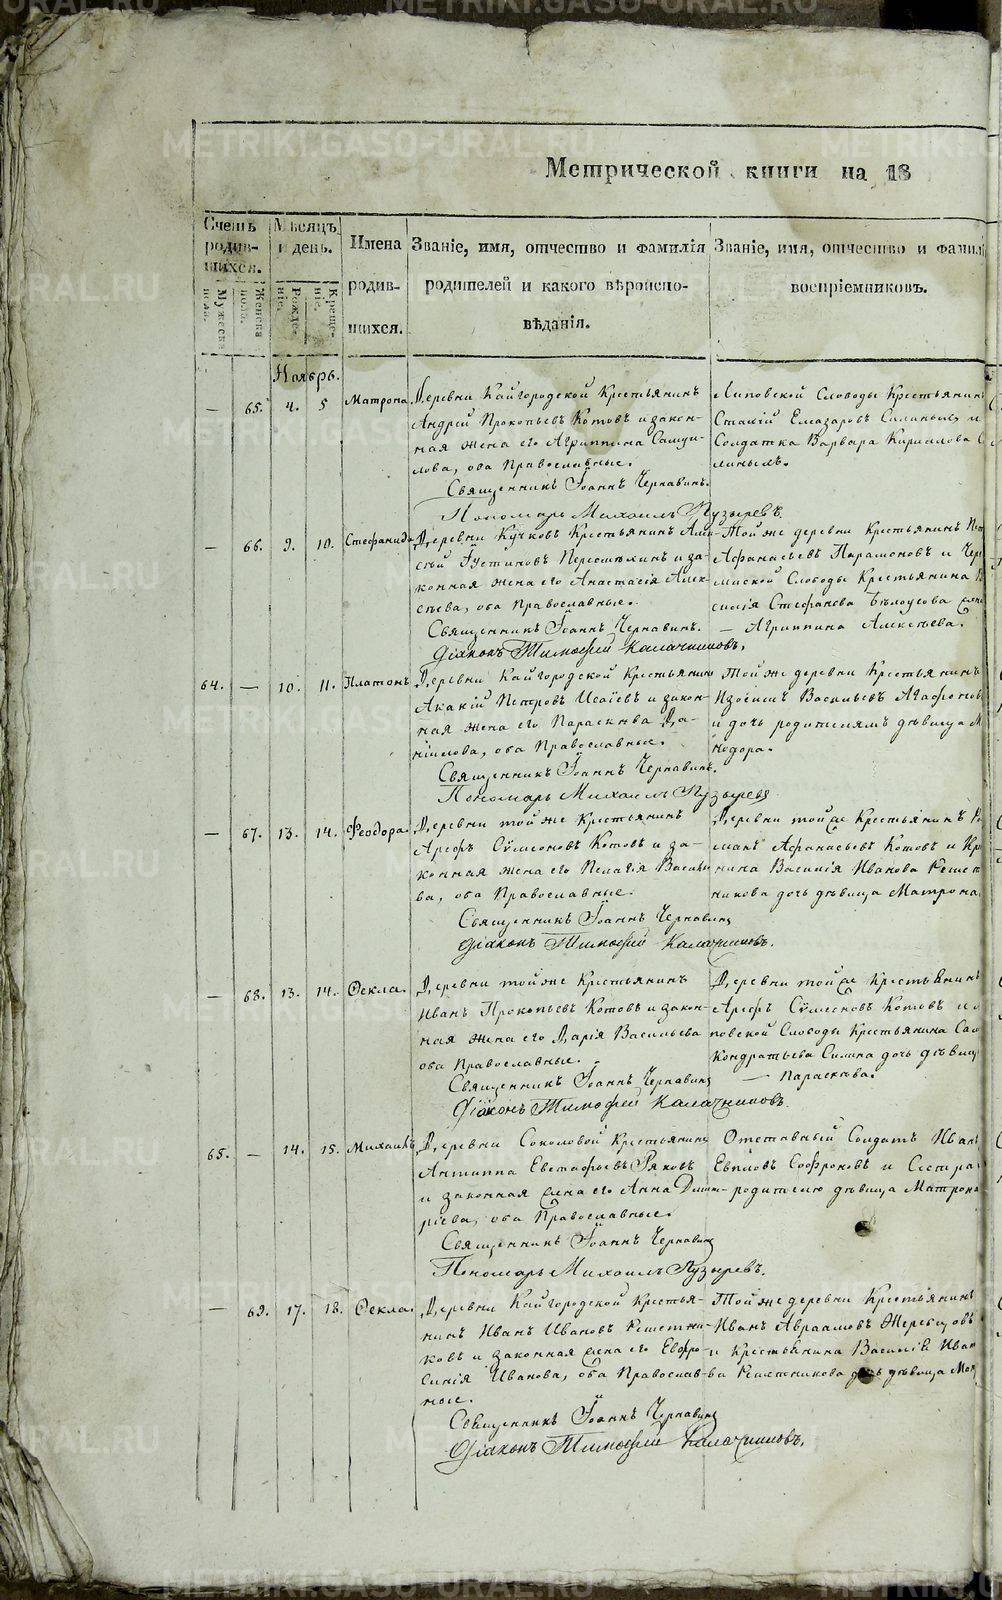 Метрической книги на 18
Счетъ родив-шихся.
Мѣсяцъ и день.
Имена родив-шихся.
Званіе, имя, отчество и фамилія родителей и какого вѣроиспо-вѣданія.
Званіе, имя, отчество и фамил
воспріемниковъ.
Мужеска пола.
Женска пола.
Рожде-ніе.
Креще-ніе.
Ноябрь.
— 65. 4. 5 Матрона.
Деревни Кайгородской Крестьянинъ
Андрей Прокопьевъ Котовъ и закон-
ная жена его Агриппина Самуи-
лова, оба Православные.
Священникъ Іоаннъ Чернавинъ.
Пономарь Михаилъ Пузыревъ.
Липовской Слободы Крестьянинъ
Елеазаровъ и
Солдатка Варвара Кирилова
— 66. 9. 10. Стефанида
Деревни Кучковъ Крестьянинъ Алек-
сѣй Іустиновъ и за-
конная жена его Анастасія Алек-
сѣева, оба Православные.
Священникъ Іоаннъ Чернавинъ.
Діаконъ Тимофей Калачниковъ.
Той же деревни Крестьянинъ
Афанасьевъ Парамоновъ и
Слободы Крестьянина
Стефанова Бѣлоусова жена
— Агриппина Алексѣева.
64. — 10. 11. Платонъ
Деревни Кайгородской Крестьянинъ
Акакій Петровъ Исаевъ и закон-
ная жена его Параскева Да-
ніилова, оба Православные.
Священникъ Іоаннъ Чернавинъ.
Пономарь Михаилъ Пузыревъ
Той же деревни Крестьянинъ
Васильевъ Агафонов
и дочь родителямъ дѣвица М
нодора.
— 67. 13. 14. Феодора.
Деревни той же Крестьянинъ
Арефъ Сумеоновъ Котовъ и за-
конная жена его Пелагія Василье
ва, оба Православные.
Священникъ Іоаннъ Чернавинъ
Діаконъ Тимофей Калачниковъ.
Деревни той же Крестьянинъ Ро
манъ Афанасьевъ Котовъ и Кре
нина Василія Иванова Решет
никова дочь дѣвица Матрона.
— 68. 13. 14. Ѳекла.
Деревни той же Крестьянинъ
Иванъ Прокопьевъ Котовъ и закон-
ная жена его Дарія Васильева
оба Православные.
Священникъ Іоаннъ Чернавинъ
Діаконъ Тимофей Калачниковъ.
Деревни той же Крестьянинъ
Арефъ Сумеоновъ Котовъ и Ли
повской Слободы Крестьянина
Кондратьева Силина дочь дѣвица
— Параскева.
65. — 14. 15. Михаилъ
Деревни Соколовой Крестьянинъ
Антиппа Евстафьевъ Ряковъ
и законная жена его Анна Димит-
ріева, оба Православные.
Священникъ Іоаннъ Чернавинъ
Пономарь Михаилъ Пузыревъ.
Отставный Солдатъ Иванъ
Софроновъ и Сестра
родителю дѣвица Матрона
— 69. 17. 18. Ѳекла.
Деревни Кайгородской Крестья-
нинъ Иванъ Ивановъ Решетни-
ковъ и законная жена его Евфро-
синія Иванова, оба Православ-
ные.
Священникъ Іоаннъ Чернавинъ
Діаконъ Тимофей Калачниковъ.
Той же деревни Крестьянинъ
Иванъ Авраамовъ Жеребцовъ
и Крестьянина Василія Ива
ва Решетникова дочь дѣвица
METRIKI.GASO-URAL.RU